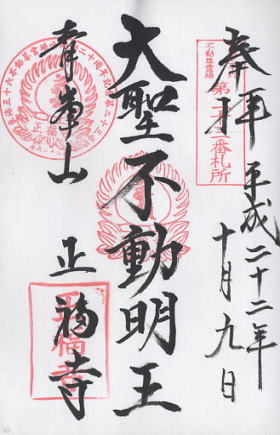 奉拝 平成二十二年
十月九日
大聖不動明王
青峯山 正福寺
不動尊霊場
番札所
正福寺